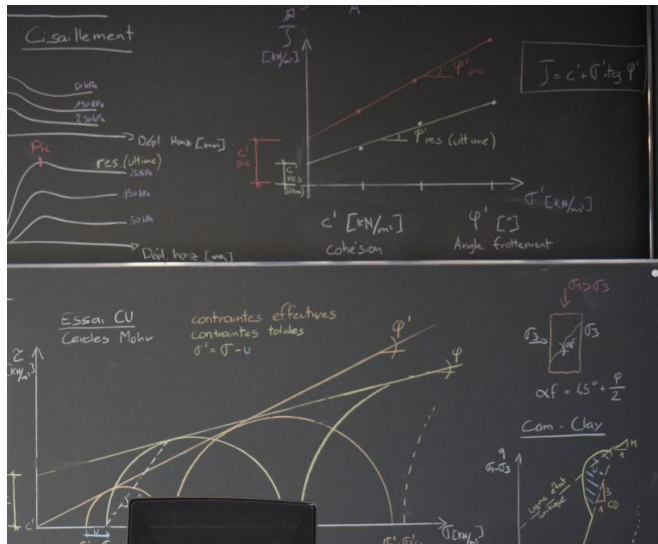 Cisaillement
50 kPa
150 kPa
250 kPa
Dépl. Horiz [mm]
Pic
res. (ultime)
250kPa
150 kPa
50 kPa
Dépl. horiz [mm]
[kN/m²]
φ'pic
φ'res (ultime)
c'
pic
c'
res
σ' [kN/m²]
c' [kN/m²]
cohésion
φ' [°]
Angle frottement
J = c' + σ'·tg φ'
Essai CU
Cercles Mohr
contraintes effectives
contraintes totales
σ' = σ - u
τ
[kN/m²]
φ'
φ
c'
u
σ [kN/m²]
σ1>σ3
σ3
σ3
αf
αf = 45° + φ/2
Cam - Clay
q
σ1-σ3
M
1
CD
3
1